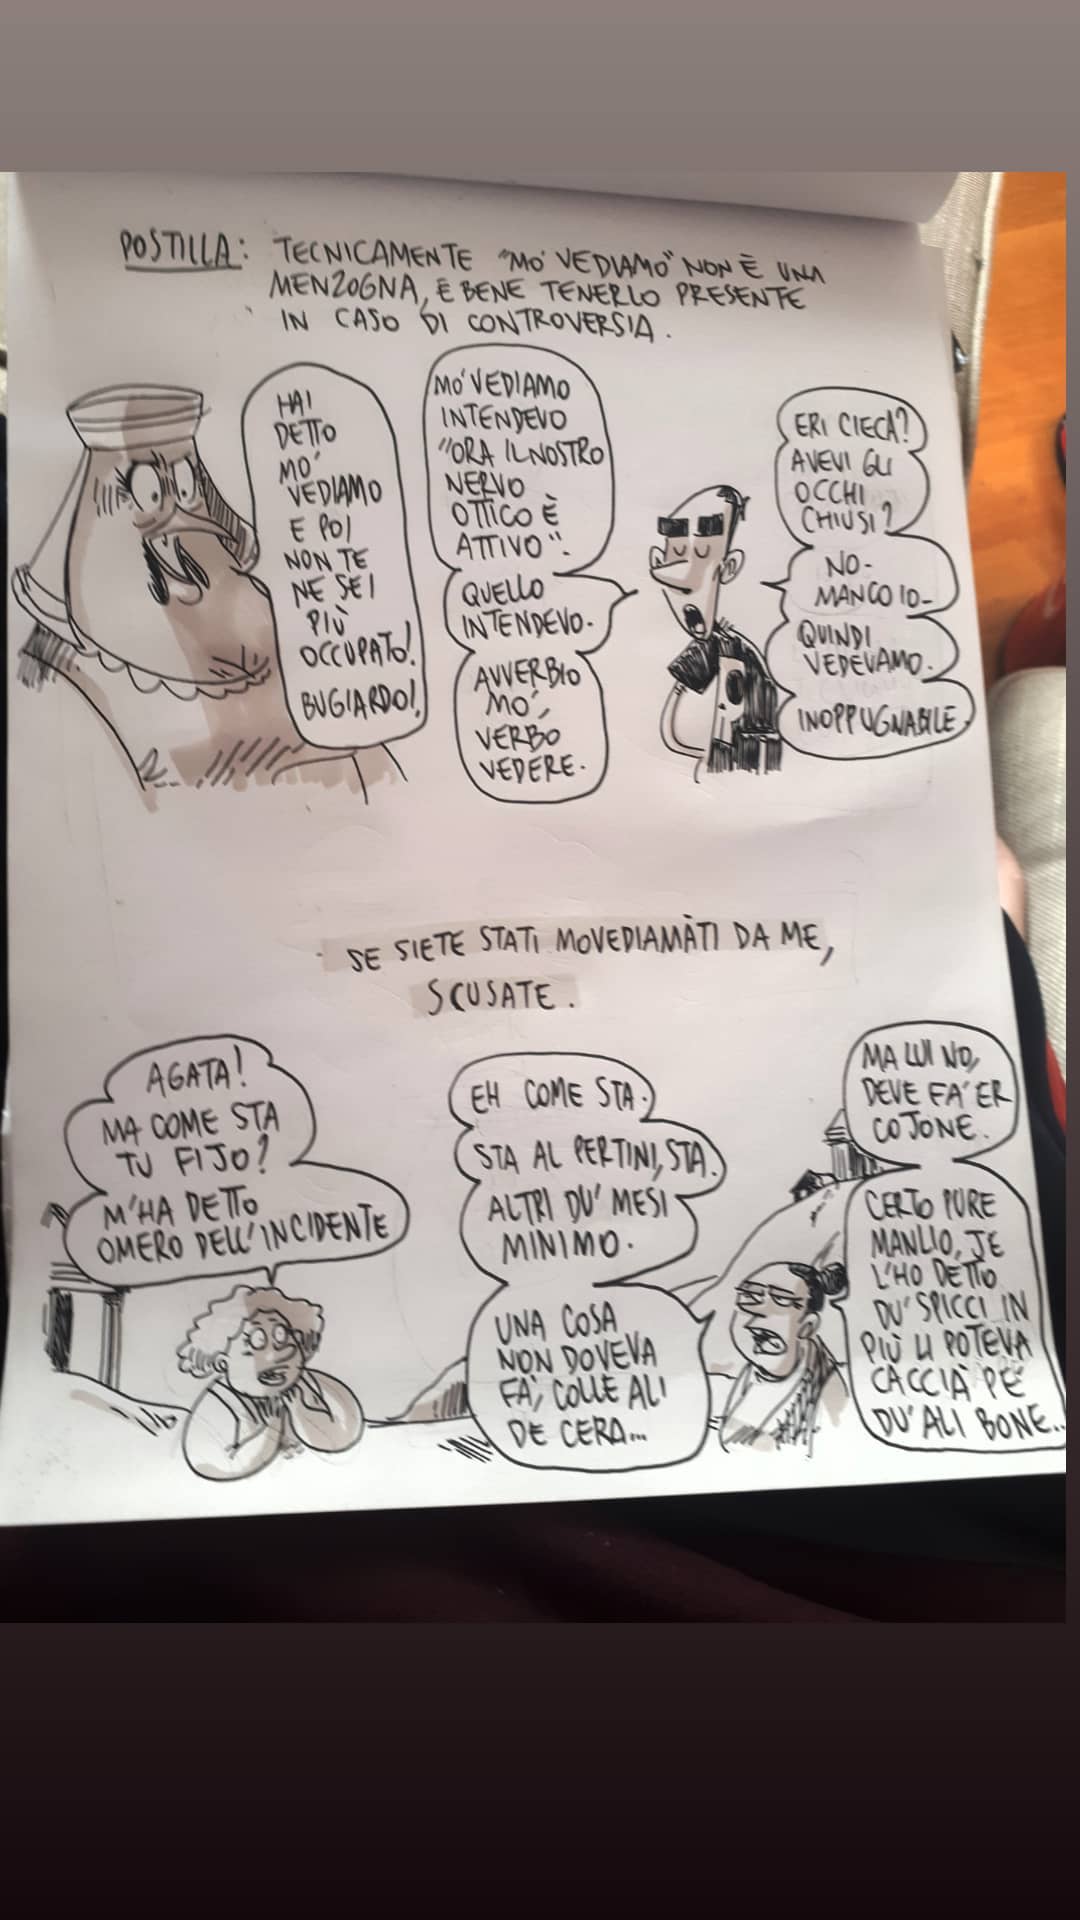 POSTILLA: TECNICAMENTE "MO' VEDIAMO" NON È UNA
MENZOGNA, È BENE TENERLO PRESENTE
IN CASO DI CONTROVERSIA.
HAI
DETTO
MO'
VEDIAMO
E POI
NON TE
NE SEI
PIÙ
OCCUPATO!
BUGIARDO!
MO' VEDIAMO
INTENDEVO
"ORA IL NOSTRO
NERVO
OTTICO È
ATTIVO".
QUELLO
INTENDEVO.
AVVERBIO
MO',
VERBO
VEDERE.
ERI CIECA?
AVEVI GLI
OCCHI
CHIUSI?
NO.
MANCO IO.
QUINDI
VEDEVAMO.
INOPPUGNABILE.
SE SIETE STATI MOVEDIAMÀTI DA ME,
SCUSATE.
AGATA!
MA COME STA
TU FIJO?
M'HA DETTO
OMERO DELL'INCIDENTE
EH COME STA.
STA AL PERTINI, STA.
ALTRI DU' MESI
MINIMO.
UNA COSA
NON DOVEVA
FA', COLLE ALI
DE CERA...
MA LUI NO,
DEVE FA' ER
COJONE.
CERTO PURE
MANLIO, JE
L'HO DETTO
DU' SPICCI IN
PIÙ LI POTEVA
CACCIÀ PE'
DU' ALI BONE...